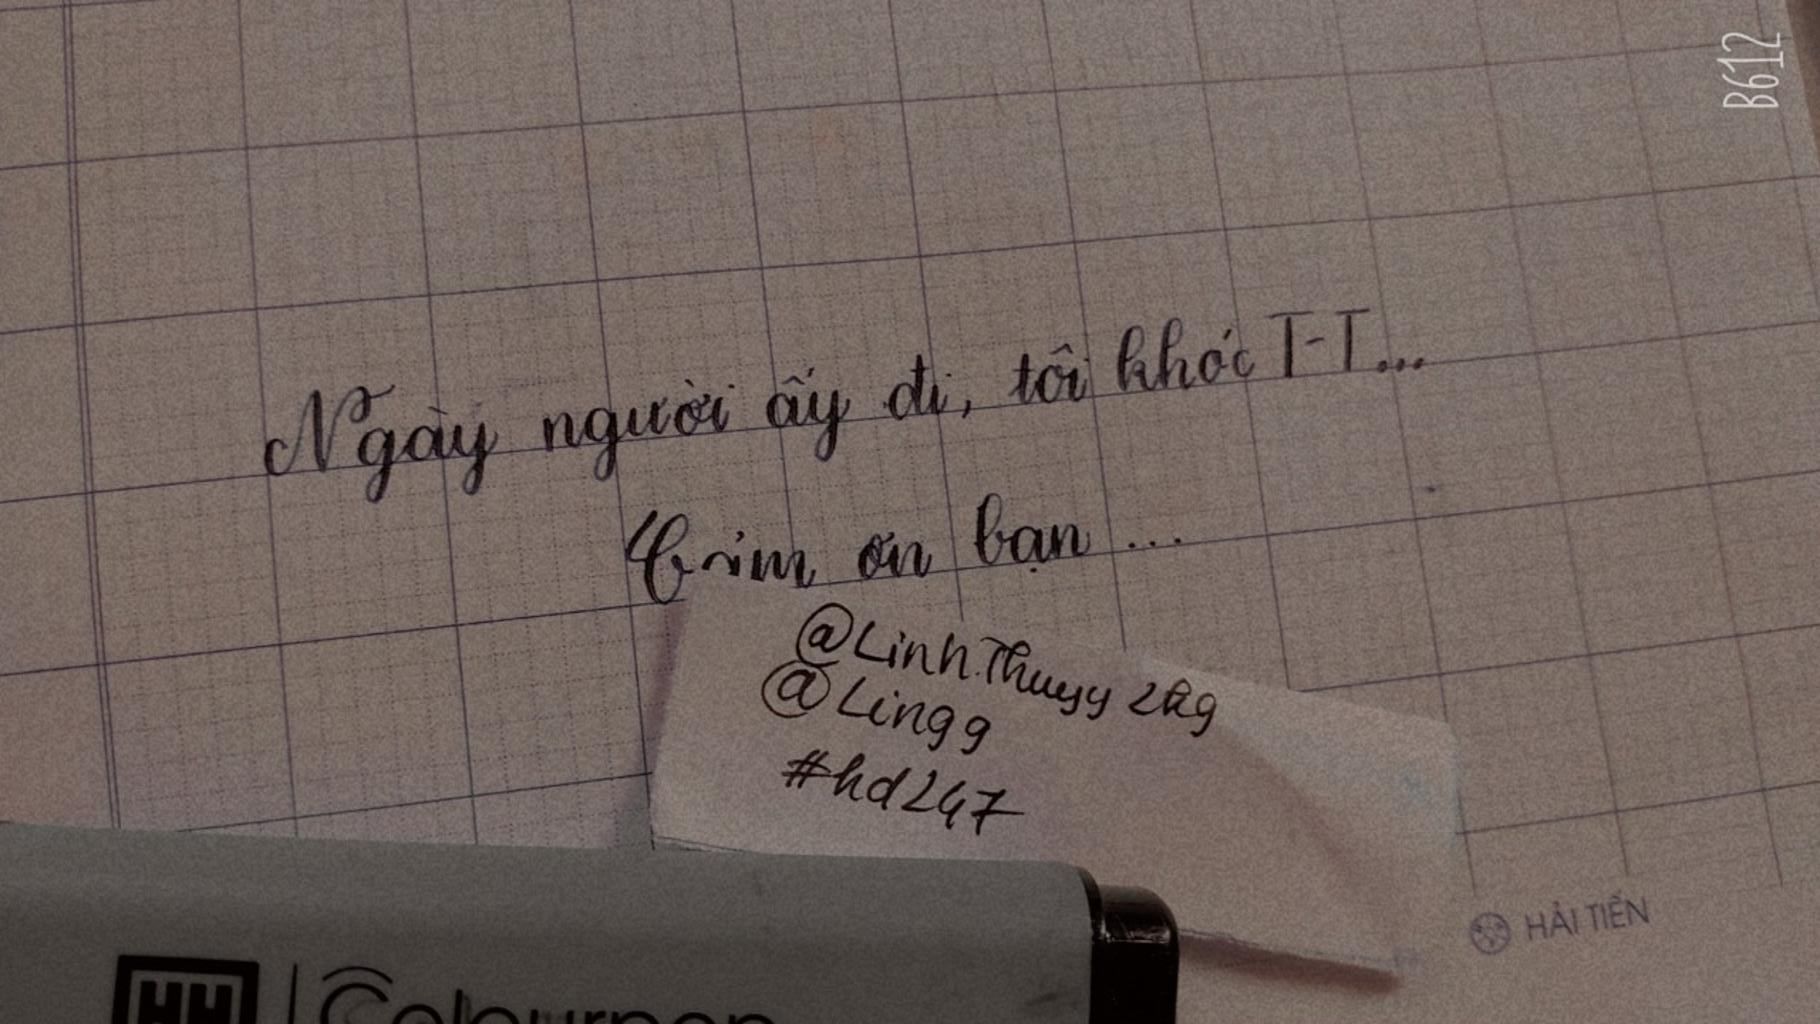 B612
Ngày người ấy đi, tôi khóc T-T...
Cảm ơn bạn ...
@Linh.Thuyy2k9
@Lingg
#hd247
HẢI TIẾN
HH | Colourpen